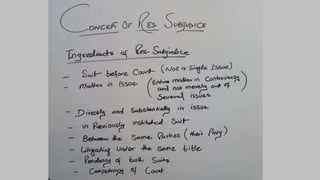 CONCEPT OF RES SUBJUDICE
Ingredients of Res-Subjudice
- Suit before Court (Not a Single Issue)
- Matter in Issue (Entire matter in Controversy
and not merely out of
Several issues)
- Directly and Substantially in issue
- in Previously instituted Suit
- Between the Same Parties (their Privy)
- Litigating under the Same title
- Pendency of both Suits
- Competency of Court